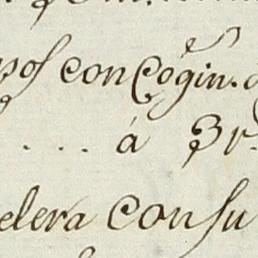 con Cogin.
. . . . á 3 r.
elera con su